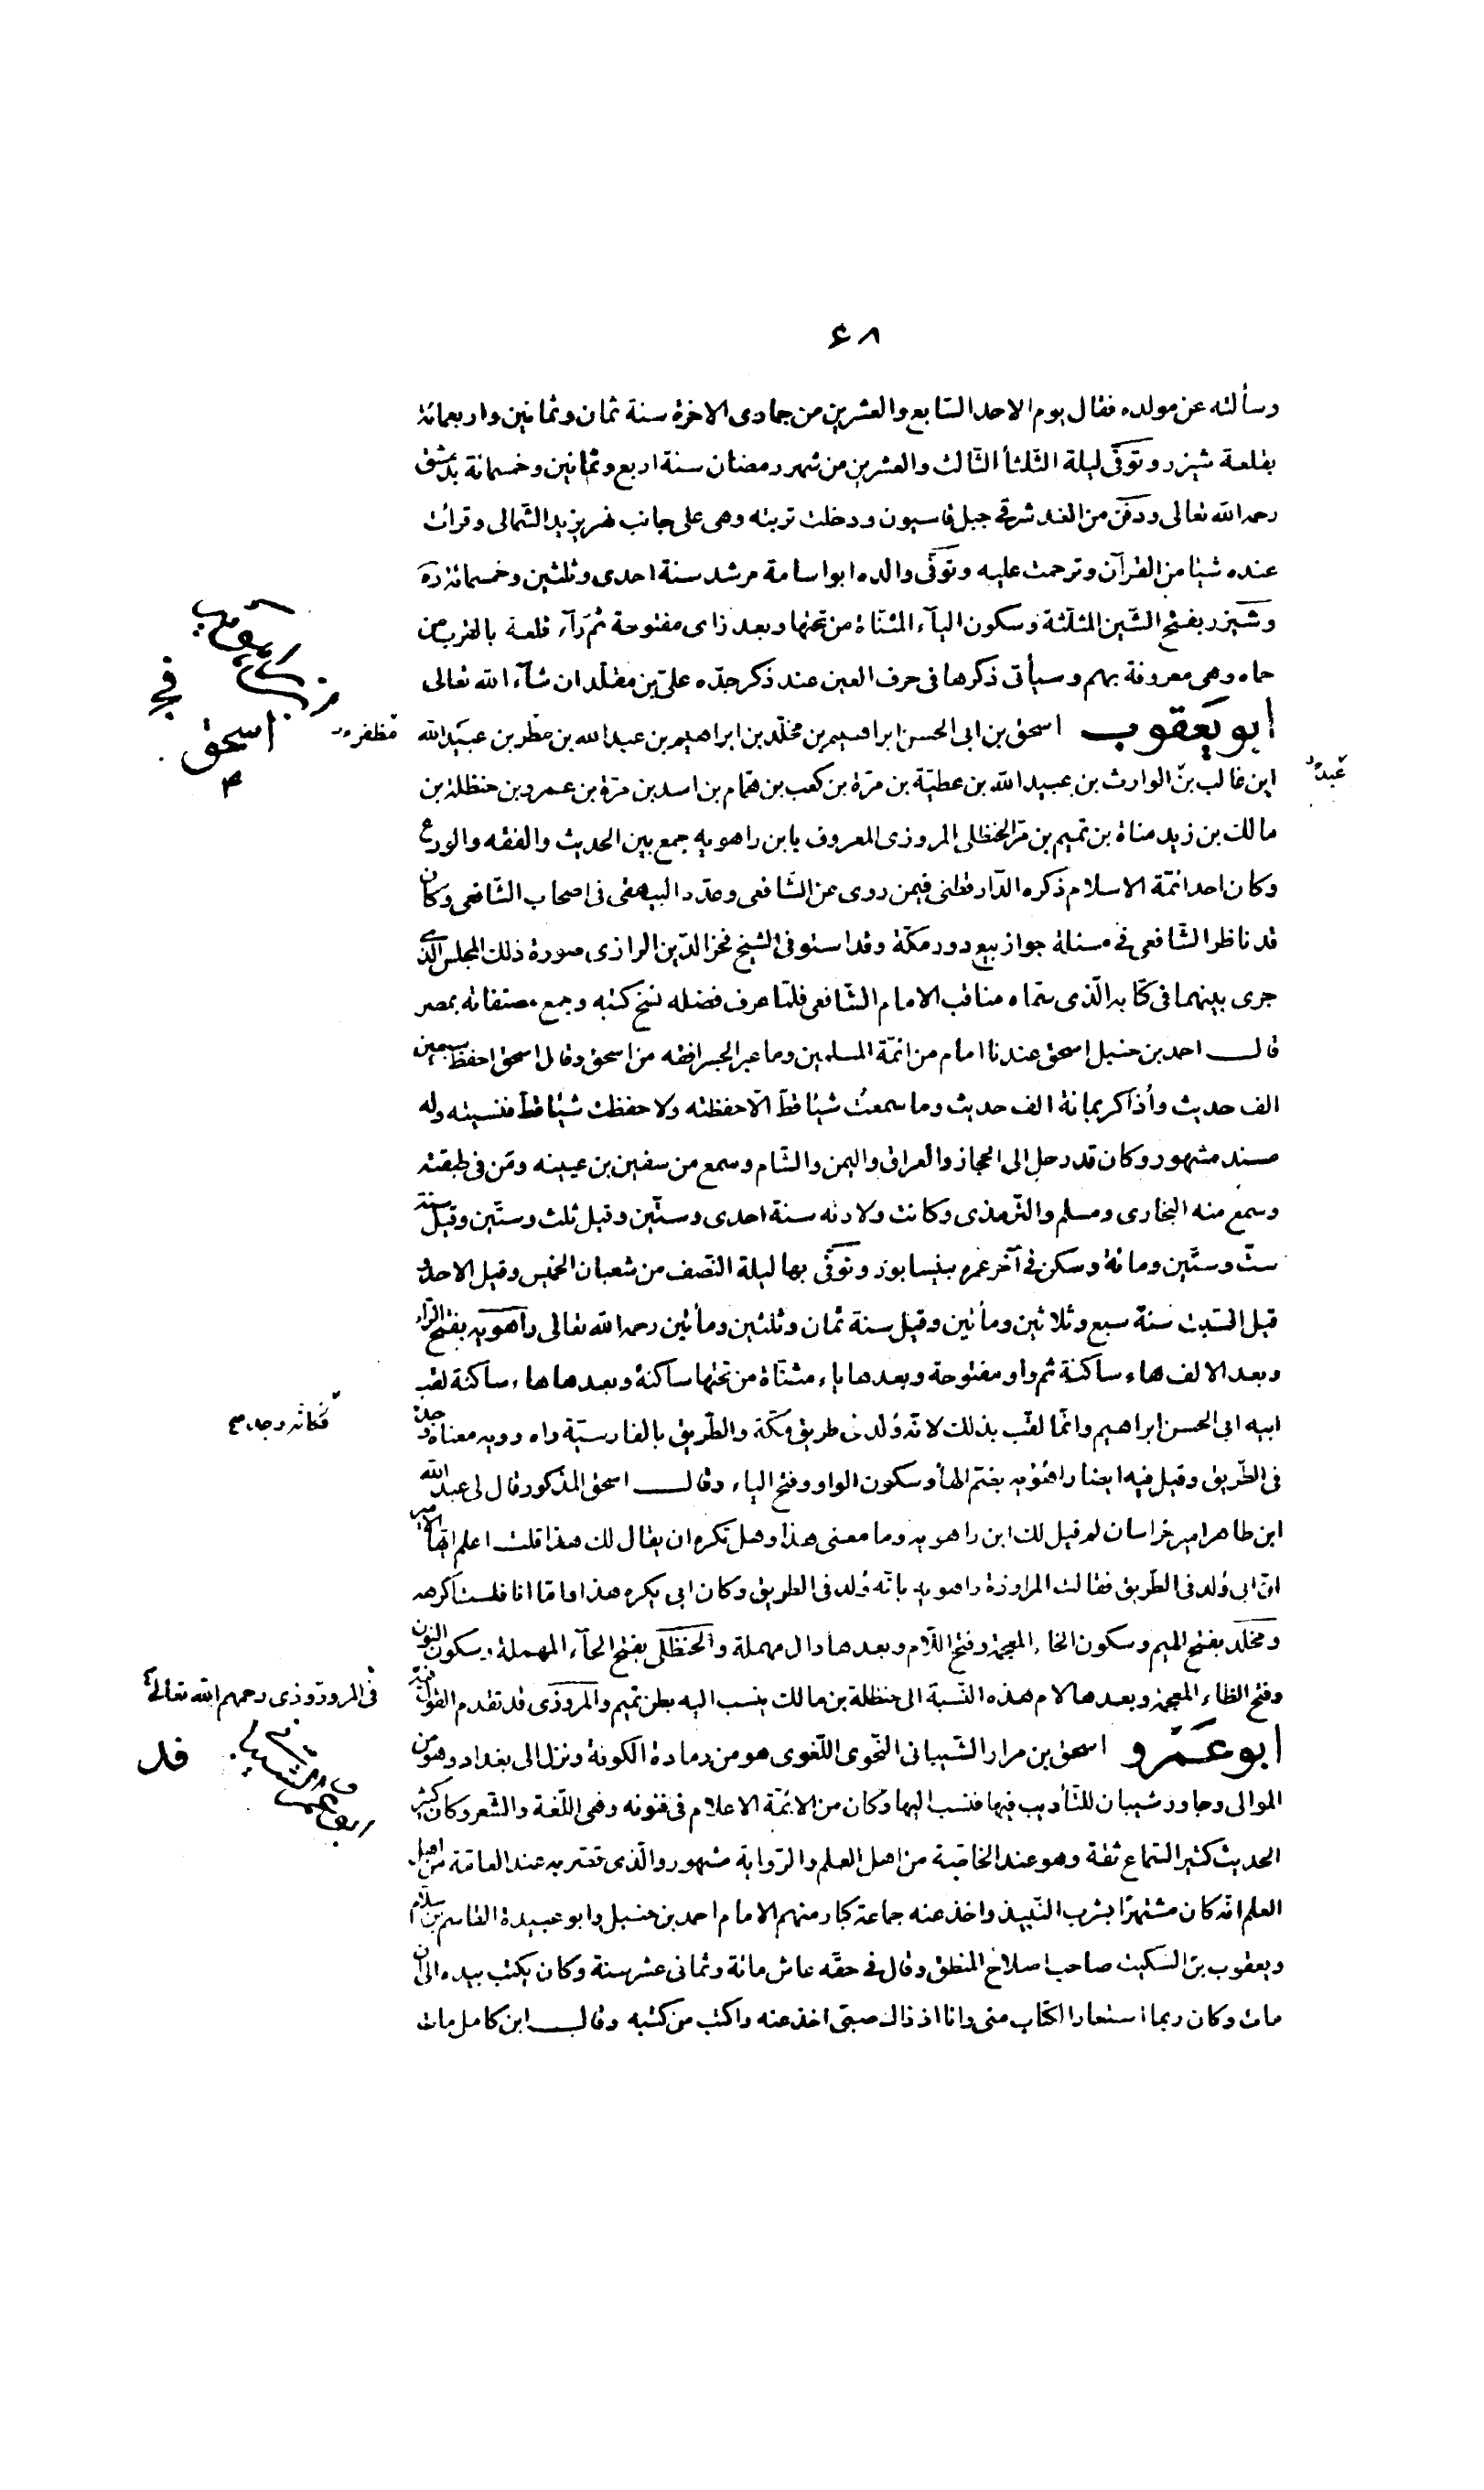 ۶۸
وسألته عن مولده فقال يوم الاحد السّابع والعشرين من جمادى الاخرة سنة ثمان وثمانين واربعمائة
بقلعة شيزر وتوفّى ليلة الثّلثأ الثّالث والعشرين من شهر رمضان سنة اربع وثمانين وخمسمائة بدمشق
رحمه الله تعالى ودفن من الغد شرقى جبل قاسيون ودخلت تربته وهى على جانب نهر يزيد الشّمالى وقرات
عنده شيئا من القرآن وترحمت عليه وتوفّى والده ابو اسامة مرشد سنة احدى وثلثين وخمسمائة ره
وشيزر بفتح الشّين المثلّثة وسكون اليآء المثنّاة من تحتها وبعد زاى مفتوحة ثم رآء قلعة بالقرب من
حماه وهى معروفة بهم وسيأتى ذكرها فى حرف العين عند ذكر جدّه علىّ بن مقلّد ان شآء الله تعالى
أبو يَعقوب اسحق بن ابى الحسن ابراهيم بن مخلّد بن ابراهيم بن عبد الله بن مطر بن عبيد الله
ابن غالب بن الوارث بن عبيد الله بن عطيّة بن مرّة بن كعب بن همّام بن اسد بن مرّة بن عمرو بن حنظلة بن
مالك بن زيد مناة بن تميم بن مرّ الحنظلى المروزى المعروف بابن راهويه جمع بين الحديث والفقه والورع
وكان احد ائمّة الاسلام ذكره الدّارقطنى فيمن روى عن الشّافعى وعدّه البيهقى فى اصحاب الشّافعى وكان
قد ناظر الشّافعى فى مسئلة جواز بيع دور مكّة وقد استوفى الشيخ فخر الدّين الرازى صورة ذلك المجلس الّذى
جرى بينهما فى كتابه الّذى سمّاه مناقب الامام الشّافعى فلمّا عرف فضله نسخ كتبه وجمع مصنفاته بمصر
قال احمد بن حنبل اسحق عندنا امام من ائمّة المسلمين وما عبر الجسر افقه من اسحق وقال اسحق احفظ سبعين
الف حديث وأذاكر بمائة الف حديث وما سمعت شيئا قطّ الّا حفظته ولا حفظت شيئا قطّ فنسيته وله
مسند مشهور وكان قد رحل الى الحجاز والعراق واليمن والشّام وسمع من سفين بن عيينه ومن فى طبقته
وسمع منه البخارى ومسلم والتّرمذى وكانت ولادته سنة احدى وستّين وقيل ثلث وستّين وقيل سنة
ستّ وستّين ومائة وسكن فى آخر عمره بنيسابور وتوفّى بها ليلة النّصف من شعبان الخميس وقيل الاحد و
قيل السّبت سنة سبع وثلاثين ومأتين وقيل سنة ثمان وثلثين ومأتين رحمه الله تعالى وراهويه بفتح الرّاء
وبعد الالف هاء ساكنة ثم واو مفتوحة وبعدها ياء مثنّاة من تحتها ساكنة وبعدها هاء ساكنة لقب
ابيه ابى الحسن ابراهيم وانّما لقّب بذلك لانّه وُلد فى طريق مكّة والطّريق بالفارسيّة راه وويه معناه وجد
فى الطّريق وقيل فيه ايضا راهُوْيه بضمّ الهأ وسكون الواو وفتح الياء وقال اسحق المذكور قال لى عبد الله
ابن طاهر امير خراسان لم قيل لك ابن راهويه وما معنى هذا وهل تكره ان يقال لك هذا قلت اعلم ايّها الامير
انّ ابى وُلد فى الطّريق فقالت المراوزة راهويه بانّه وُلد فى الطريق وكان ابى يكره هذا وامّا انا فلست اكرهه
ومخلّد بفتح الميم وسكون الخاء المعجمة وفتح اللّام وبعدها دال مهملة والحنظلى بفتح الحآء المهملة وسكون النون
وفتح الظاء المعجمة وبعدها لام هذه النّسبة الى حنظلة بن مالك ينسب اليه بطن تميم والمروزى قد تقدم القول فيه
أبو عَمرو اسحق بن مرار الشّيبانى النّحوى اللّغوى هو من رمادة الكوفة ونزل الى بغداد وهو من
الموالى وجاور شيبان للتّأديب فيها فنسب اليها وكان من الائمّة الاعلام فى فنونه وهى اللّغة والشّعر وكان كثير
الحديث كثير السّماع ثقة وهو عند الخاصّة من اهل العلم والرّواية مشهور والّذى قصّر به عند العامّة من اهل
العلم انّه كان مشتهرًا بشرب النّبيذ واخذ عنه جماعة كبار منهم الامام احمد بن حنبل وابو عبيدة القاسم بن سلّام
ويعقوب بن السّكيت صاحب اصلاح المنطق وقال فى حقّه عاش مائة وثمانى عشر سنة وكان يكتب بيده الى ان
مات وكان ربما استعار الكتاب منى وانا اذ ذاك صبىّ اخذ عنه واكتب من كتبه وقال ابن كامل مات
فى
اسحق
مظفر
عبد
فكانّه وجد
فى المروروذى رحمهم الله تعالى
ابو عمرو الشيبانى